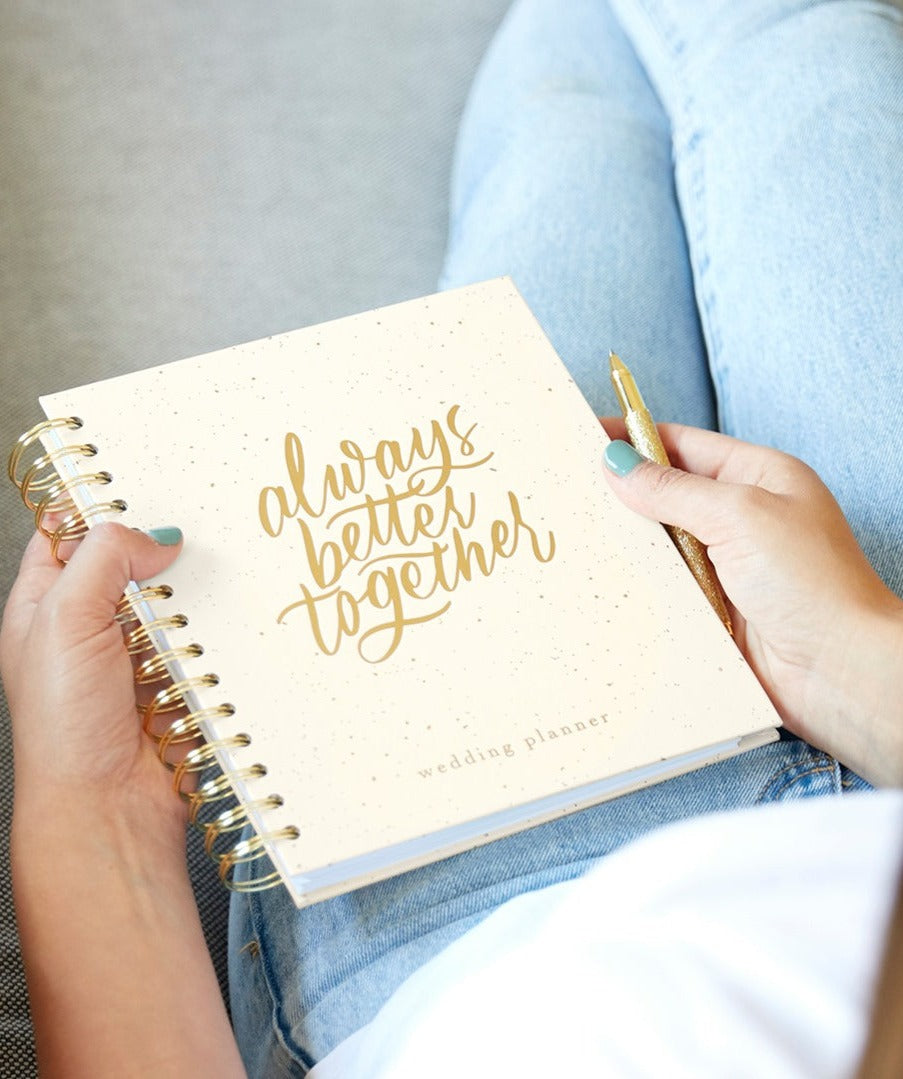 always
better
together
wedding planner